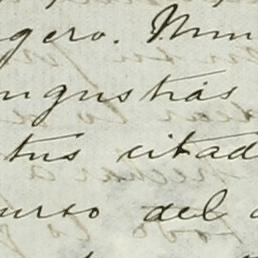 gero. Mun
ngustias
tus citad
urso del